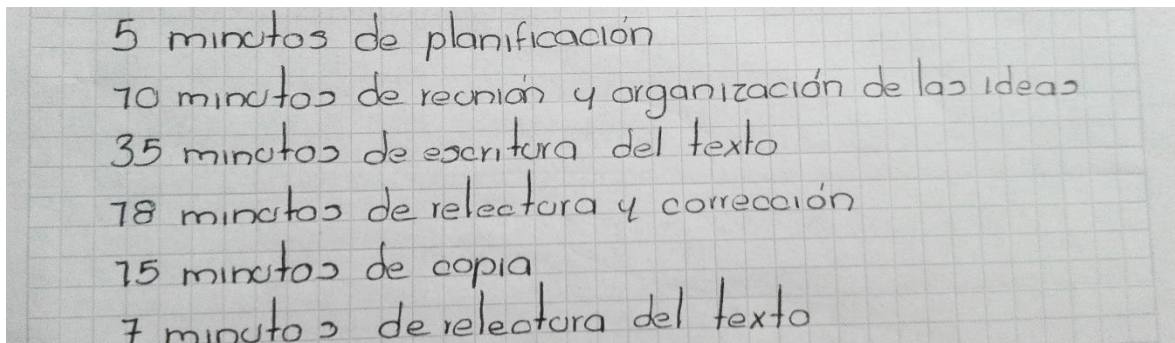 5 minutos de planificación
10 minutos de reunión y organización de las ideas
35 minutos de escritura del texto
18 minutos de relectura y corrección
15 minutos de copia
7 minutos de relectura del texto